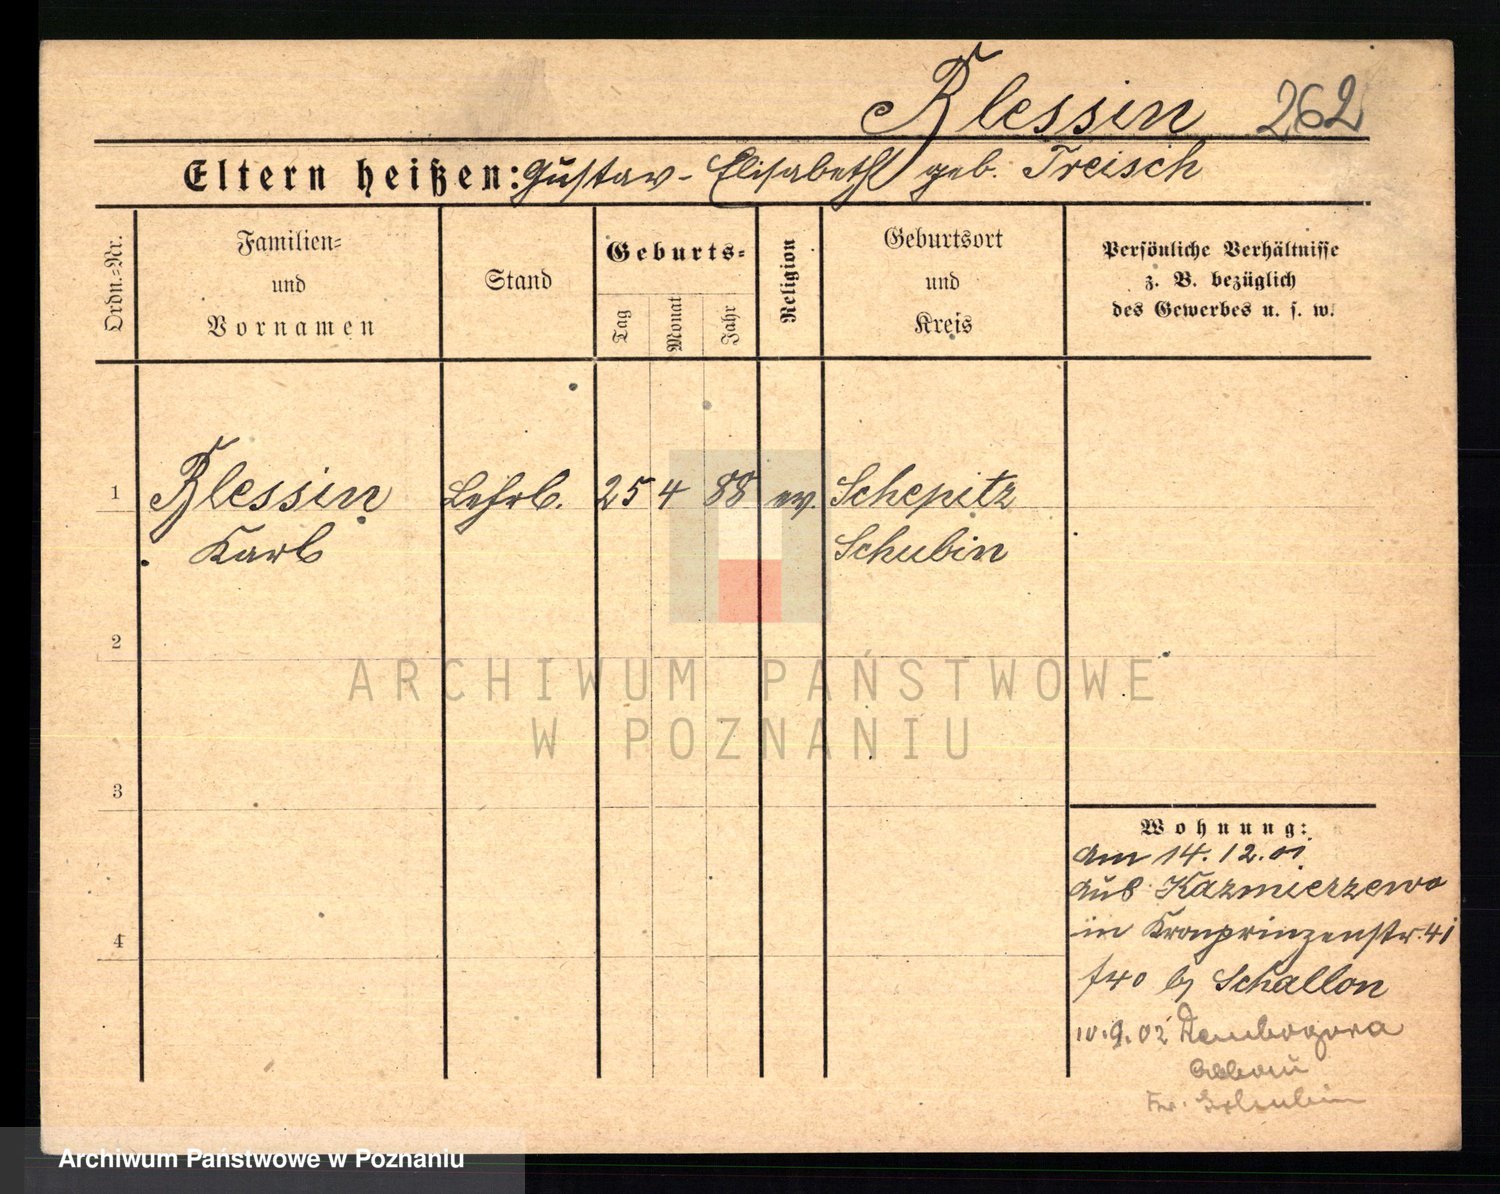 Blessin 262
Eltern heißen: Gustav - Elisabeth geb. Treisch
Ordn.=Nr.
Familien=
und
Vornamen
Stand
Geburts=
Tag
Monat
Jahr
Religion
Geburtsort
und
Kreis
Persönliche Verhältnisse
z. B. bezüglich
des Gewerbes u. s. w.
1 Blessin Lehrb. 25 4 88 ev. Schepitz
Karl Schubin
2
3
4
Wohnung:
am 14. 12. 01
aus Kazmierzewo
in Kronprinzenstr. 41
b/ Schallon
10.9.02 Dembogora
Schubin
ARCHIWUM PAŃSTWOWE
W POZNANIU
Archiwum Państwowe w Poznaniu